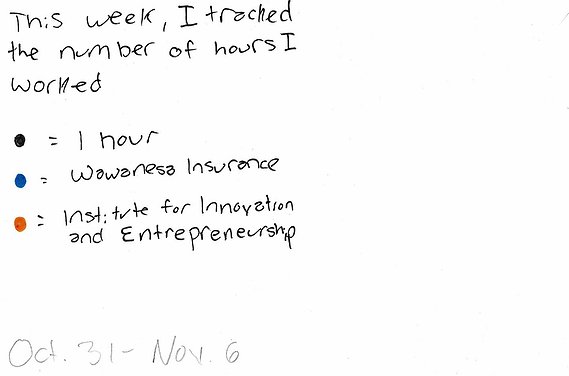 This week, I tracked
the number of hours I
worked
= 1 hour
= Wawanesa Insurance
= Institute for Innovation
and Entrepreneurship
Oct. 31- Nov. 6